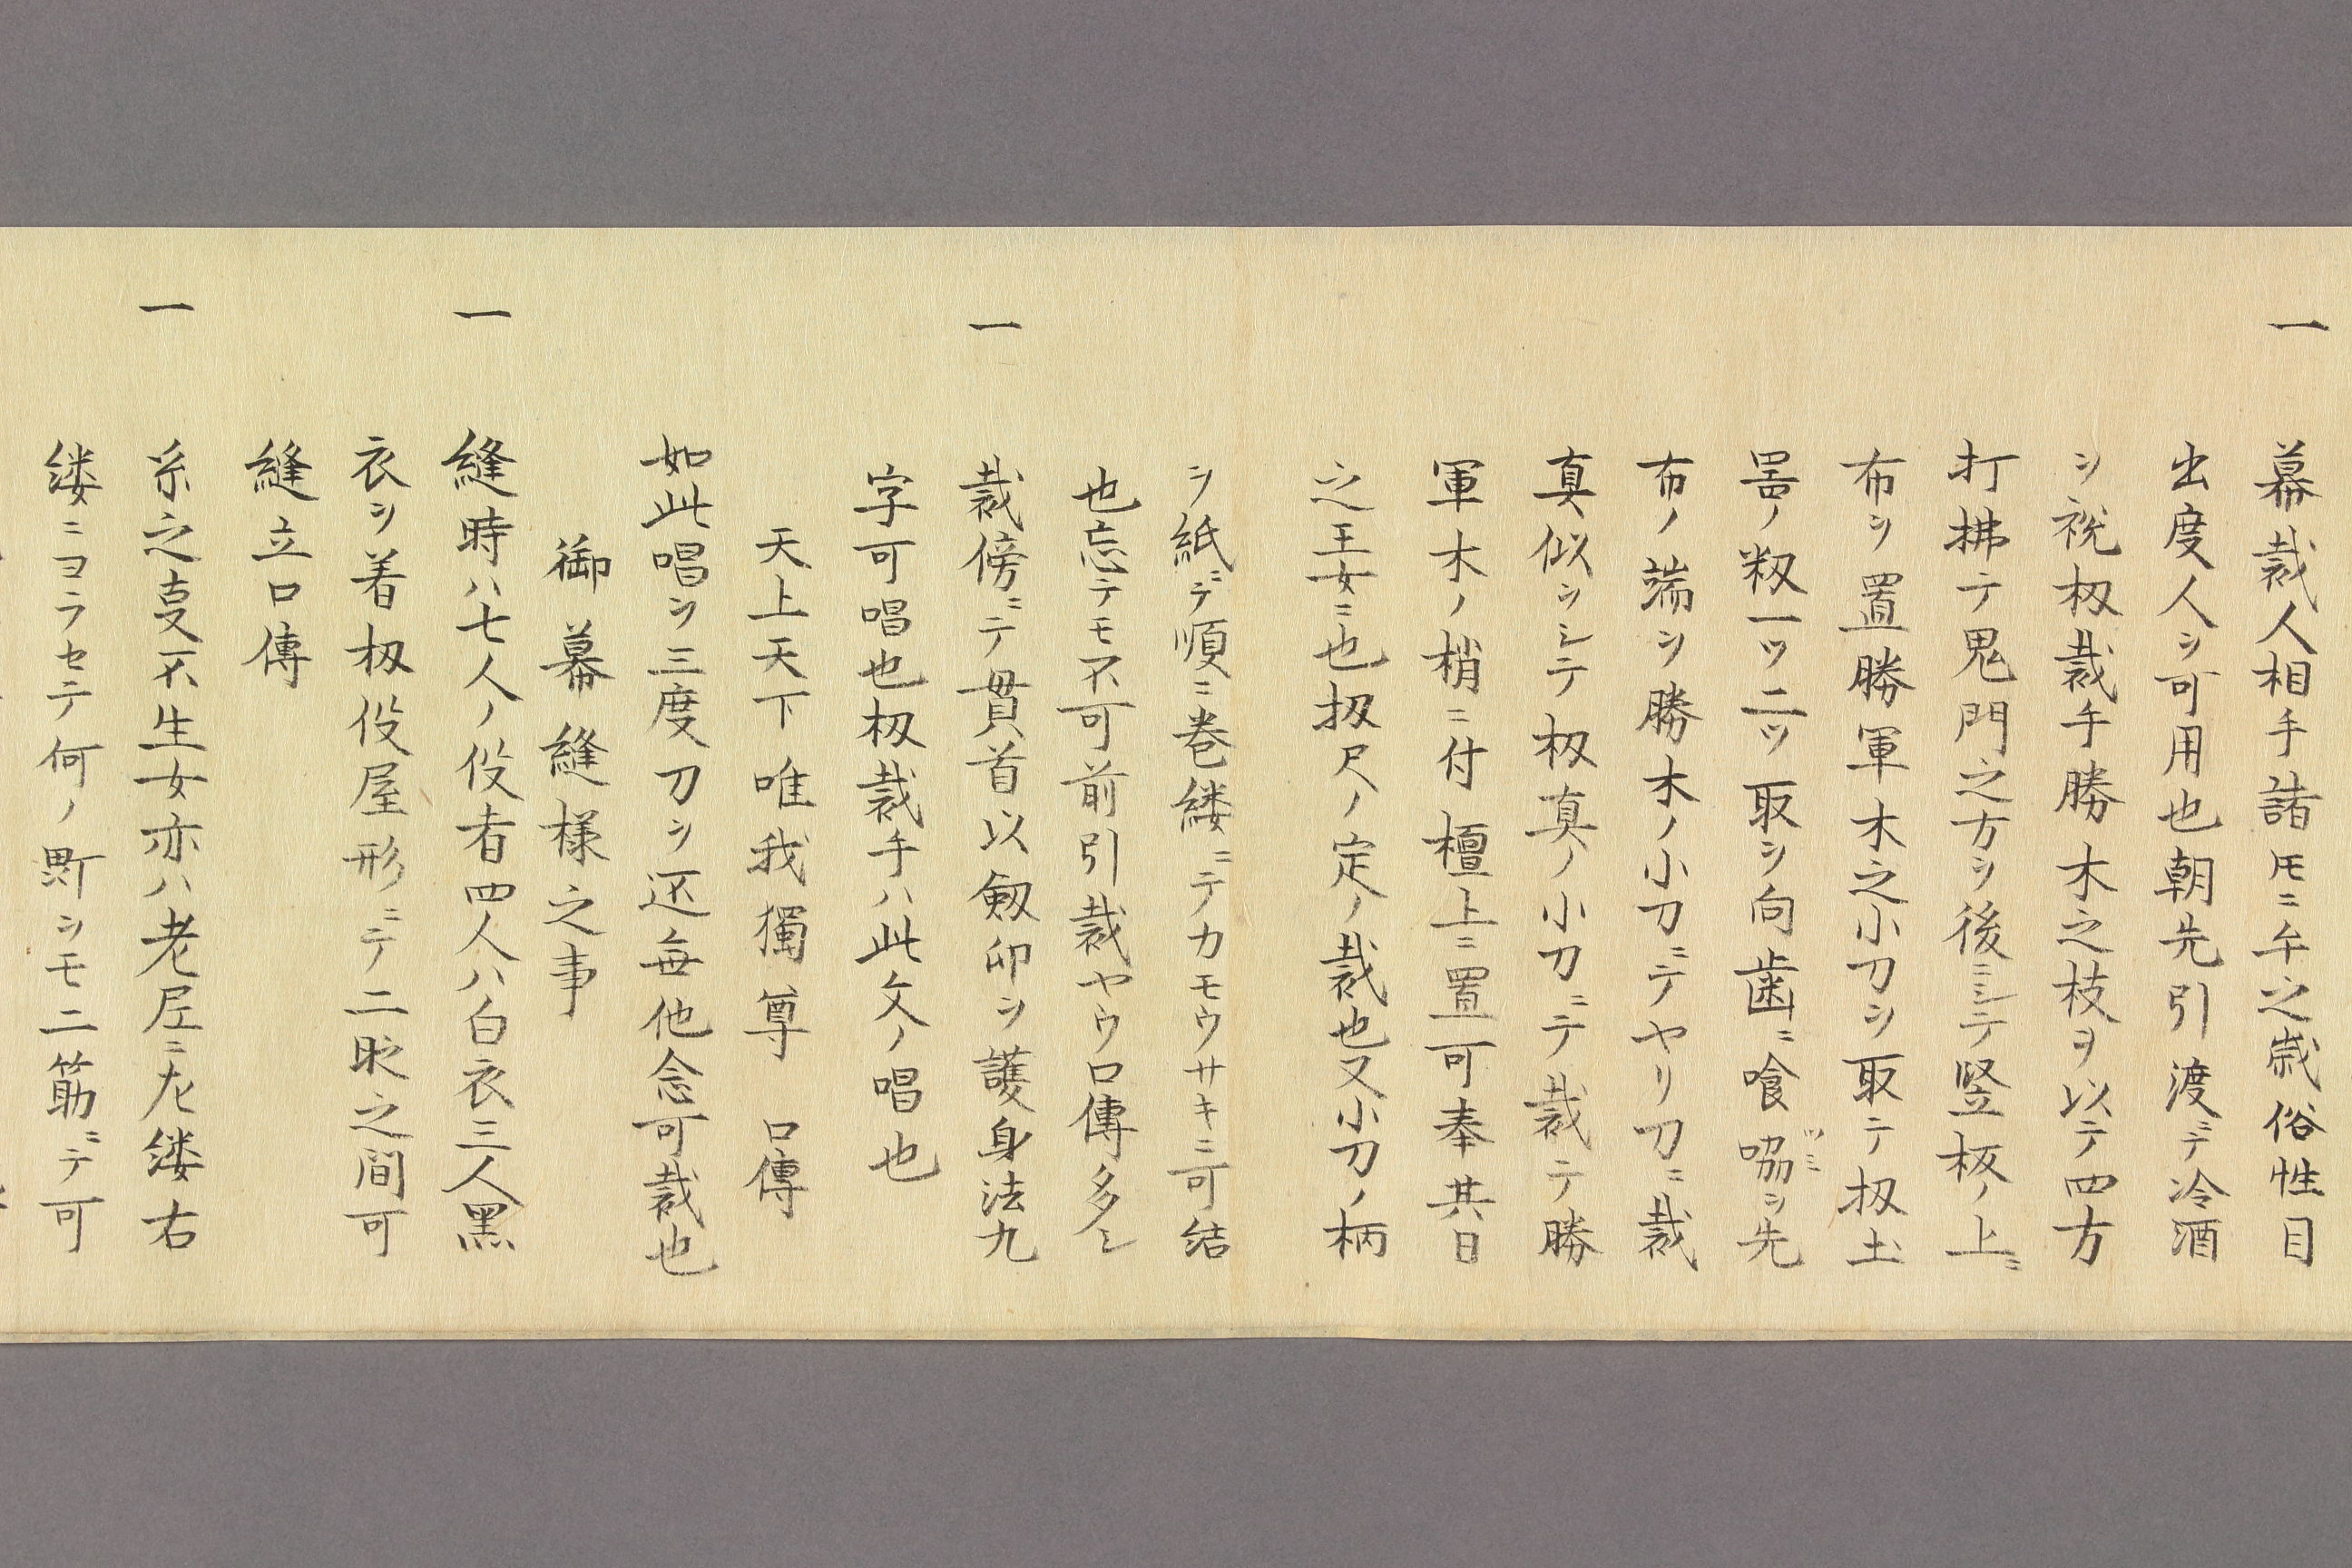 一 幕裁人相手諸圧ニ午之歳俗性目
出度人ヲ可用也朝先引渡ニテ冷酒
ヲ祝扨裁手勝木之枝ヲ以テ四方
打拂テ鬼門之方ヲ後ニシテ竪板ノ上ニ
布ヲ置勝軍木之小刀ヲ取テ扨土
器ノ籾一ツ二ツ取ヲ向歯ニ喰嗋ヲ先
布ノ端ヲ勝木ノ小刀ニテヤリ刀ニ裁
真似ヲシテ扨真ノ小刀ニテ裁テ勝
軍木ノ梢ニ付檀上ニ置可奉其日
之王女ニ也扨尺ノ定ノ裁也又小刀ノ柄
ヲ紙ニテ順ニ巻縷ニテカモウサキニ可結
也忘テモ不可前引裁ヤウ口傳多シ
一 裁傍ニテ貫首以劔印ヲ護身法九
字可唱也扨裁手ハ此文ノ唱也
天上天下唯我獨尊 口傳
如此唱ヲ三度刀ヲ还無他念可裁也
御幕縫様之事
一 縫時ハ七人ノ役者四人ハ白衣三人黒
衣ヲ着扨役屋形ニテ二時之間可
縫立口傳
一 糸之㕝不生女亦ハ老尼ニ左縷右
縷ニヨラセテ何ノ町ヲモ二筋ニテ可